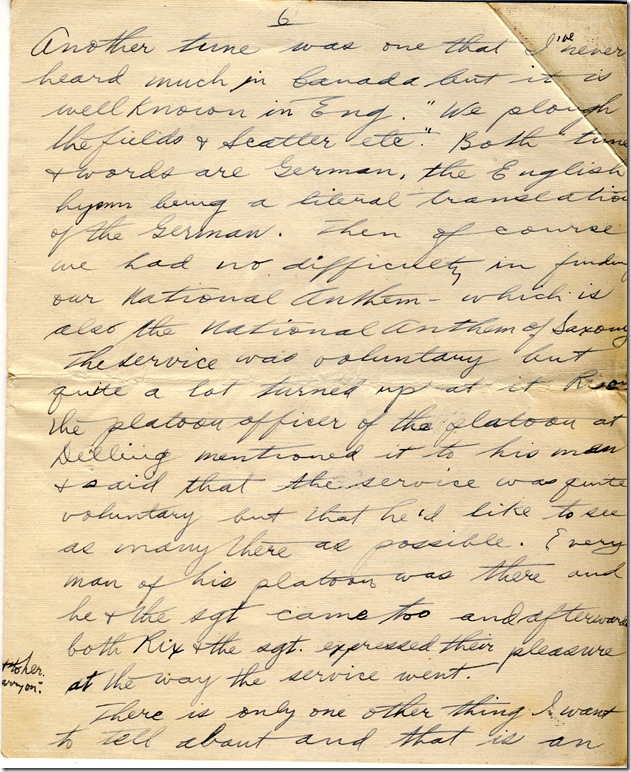 6
Another tune was one that I've never
heard much in Canada but it is
well known in Eng. "We plough
the fields & Scatter etc". Both tune
& words are German, the English
hymn being a literal translation
of the German. Then of course
we had no difficulty in finding
our National Anthem - which is
also the National Anthem of Saxony
The service was voluntary but
quite a lot turned up at it
the platoon officer of the platoon at
mentioned it to his men
& said that the service was quite
voluntary but that he'd like to see
as many there as possible. Every
man of his platoon was there and
he & the sgt came too and afterwards
both Rix & the sgt. expressed their pleasure
at the way the service went.
There is only one other thing I want
to tell about and that is an